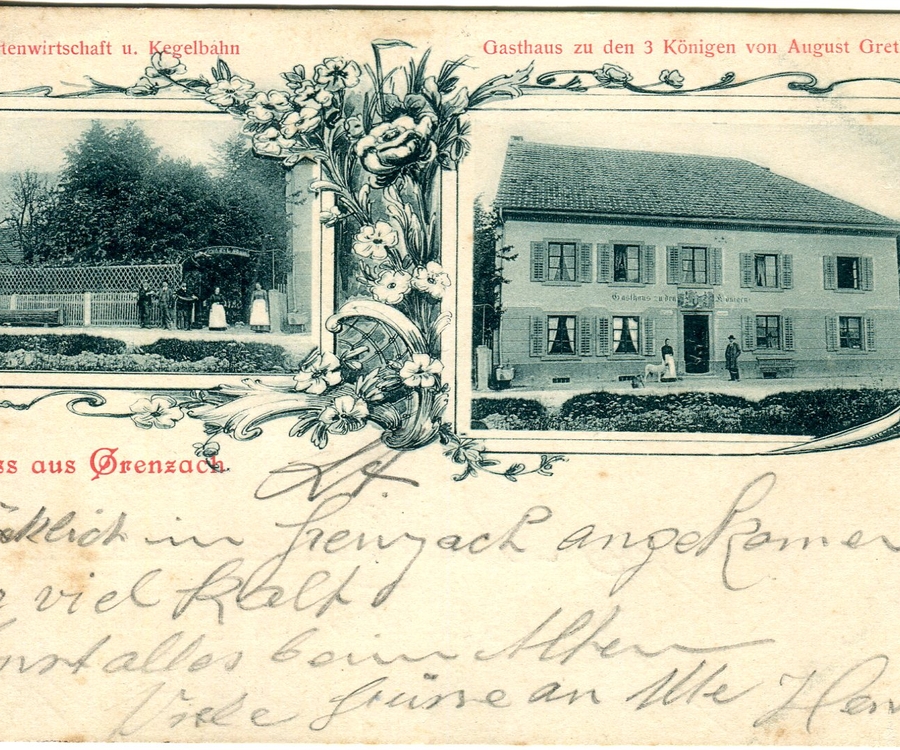 rtenwirtschaft u. Kegelbahn
Gasthaus zu den 3 Königen von August Gret
Gasthaus zu den Königen
ss aus Grenzach
cklich in Grenzach angekomen
viel Kalt
nst alles beim Alten
Viele Grüse an Alle